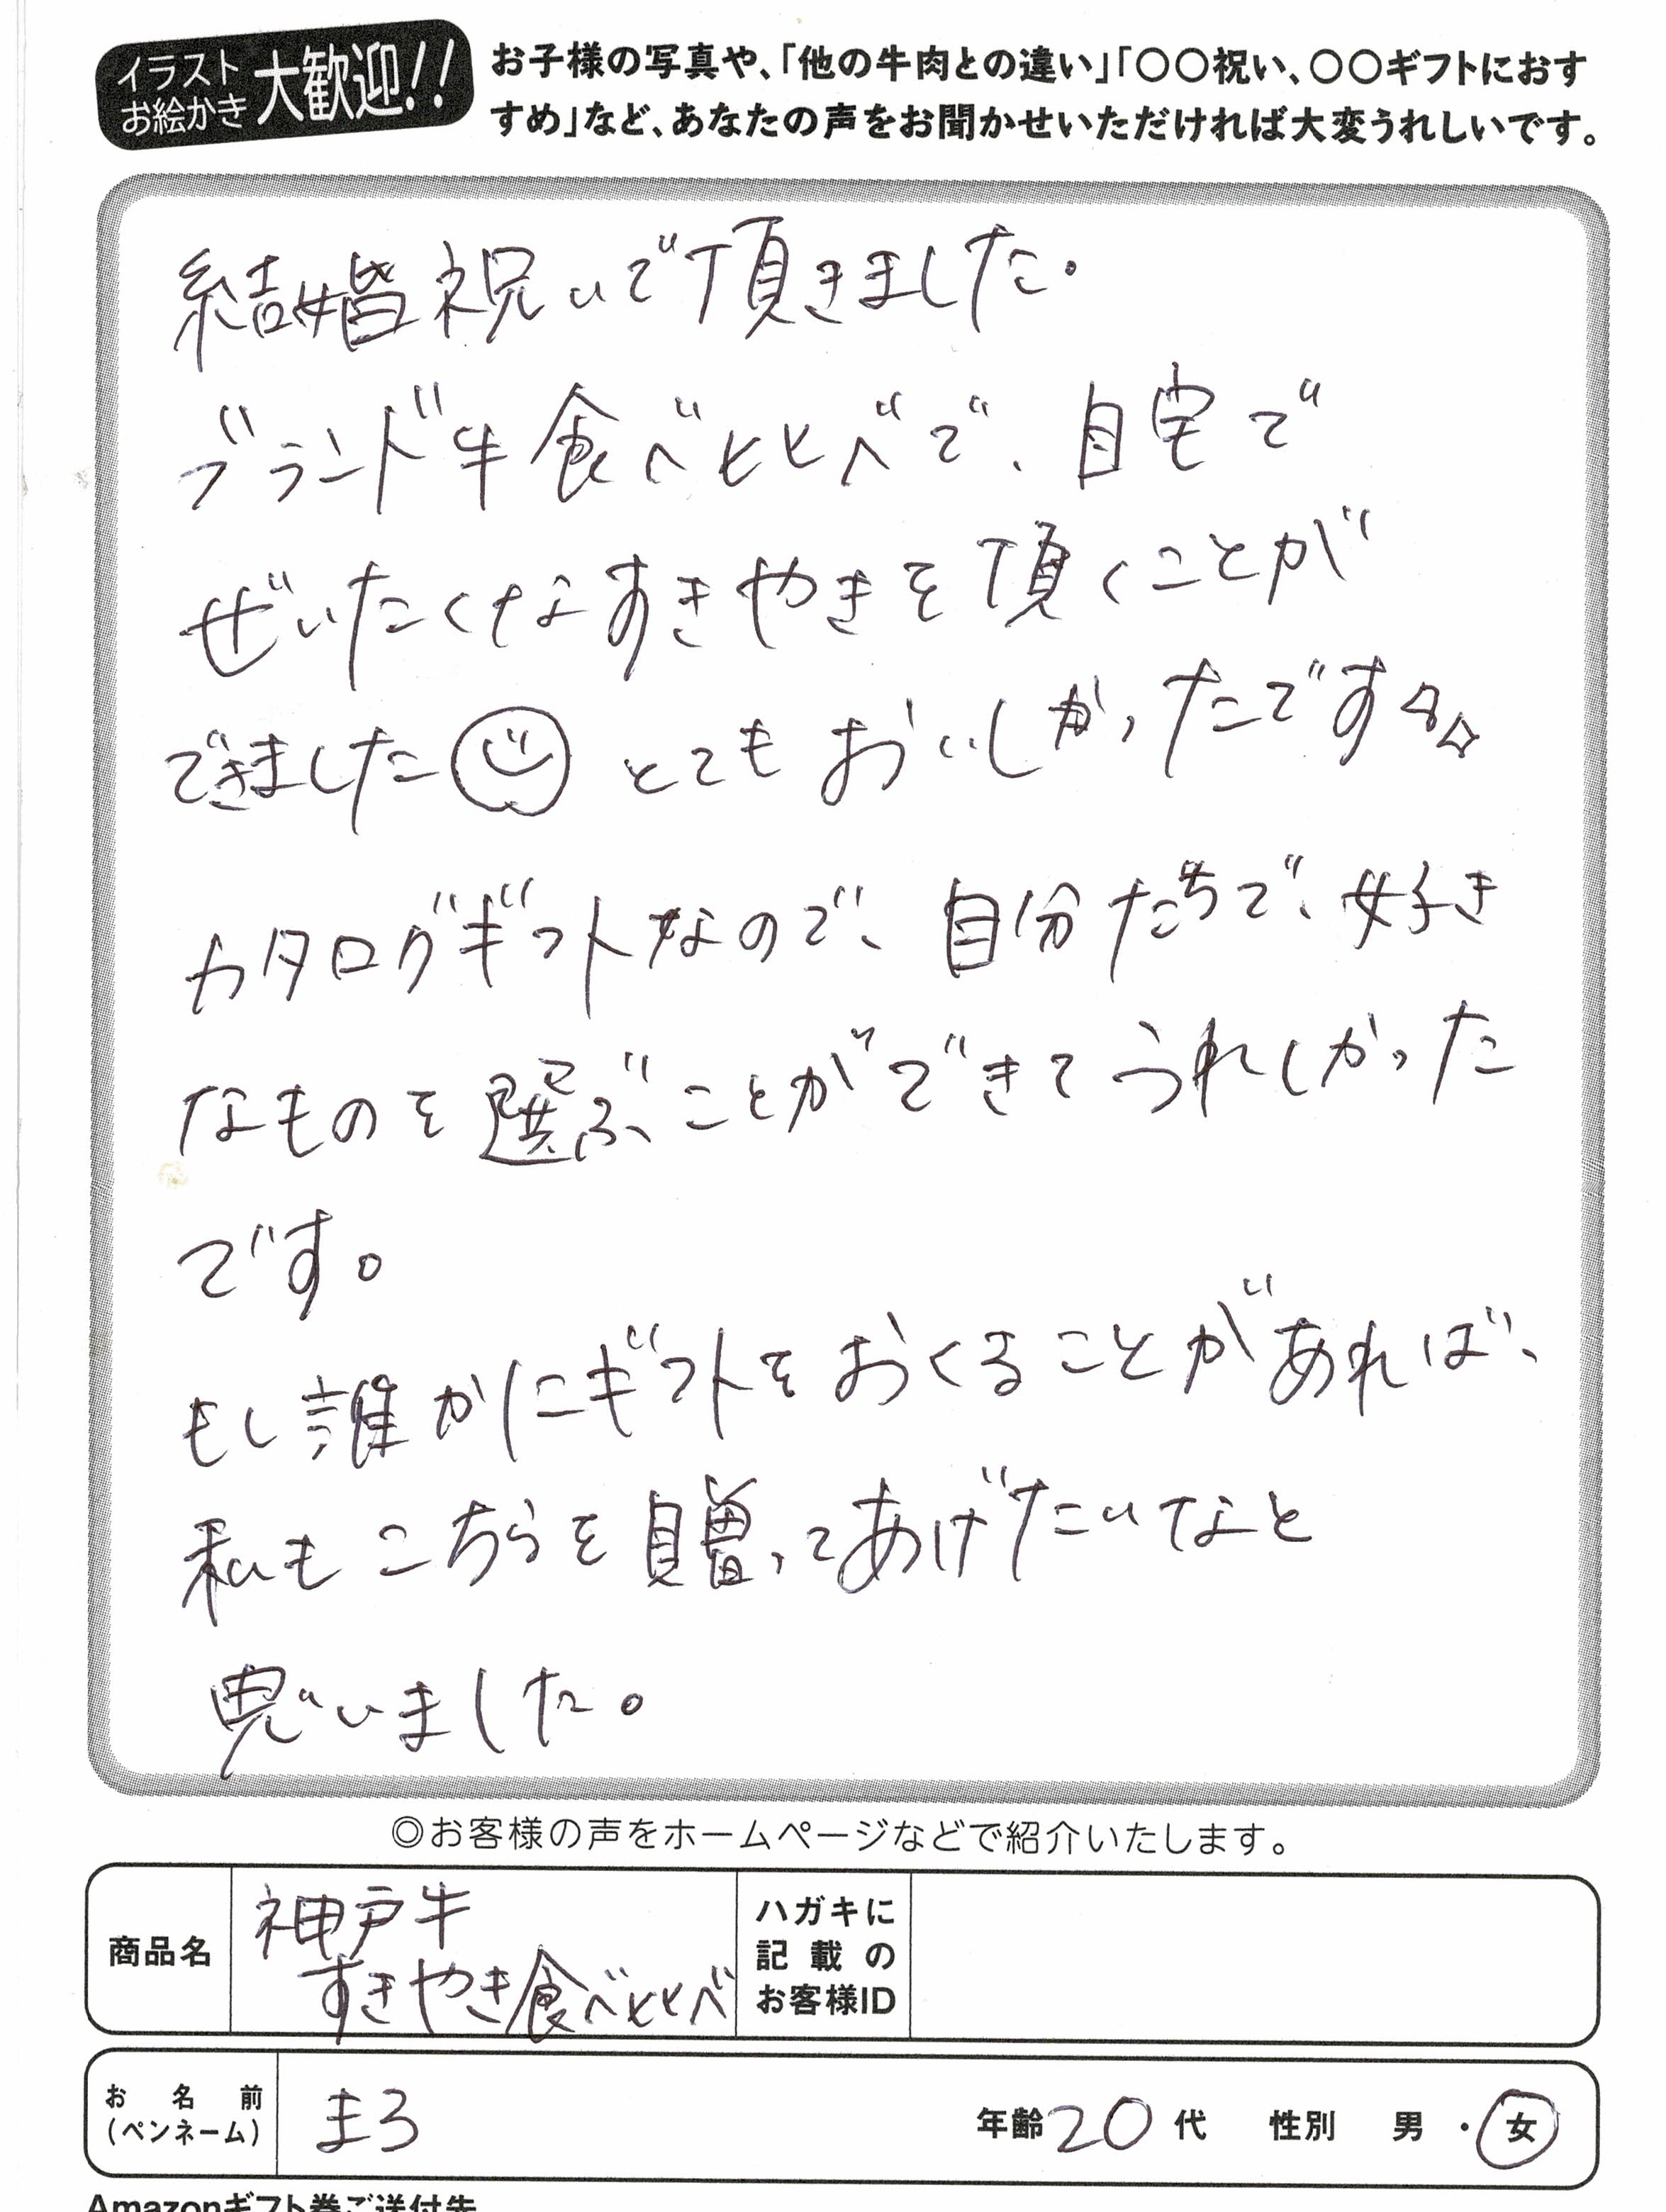 イラスト
お絵かき
大歓迎!!
お子様の写真や、「他の牛肉との違い」「〇〇祝い、〇〇ギフトにおす
すめ」など、あなたの声をお聞かせいただければ大変うれしいです。
結婚祝いで頂きました.
ブランド牛食べ比べで、自宅で
ぜいたくなすきやきを頂くことが
できました とてもおいしかったです
カタログギフトなので、自分たちで、好き
なものを選ぶことができてうれしかった
です。
もし誰かにギフトをおくることがあれば、
私もこちらを贈ってあげたいなと
思いました。
◎お客様の声をホームページなどで紹介いたします。
商品名
神戸牛
すきやき食べ比べ
ハガキに
記載の
お客様ID
お名前
(ペンネーム)
まろ
年齢20代 性別 男・女
Amazonギフト券ご送付先